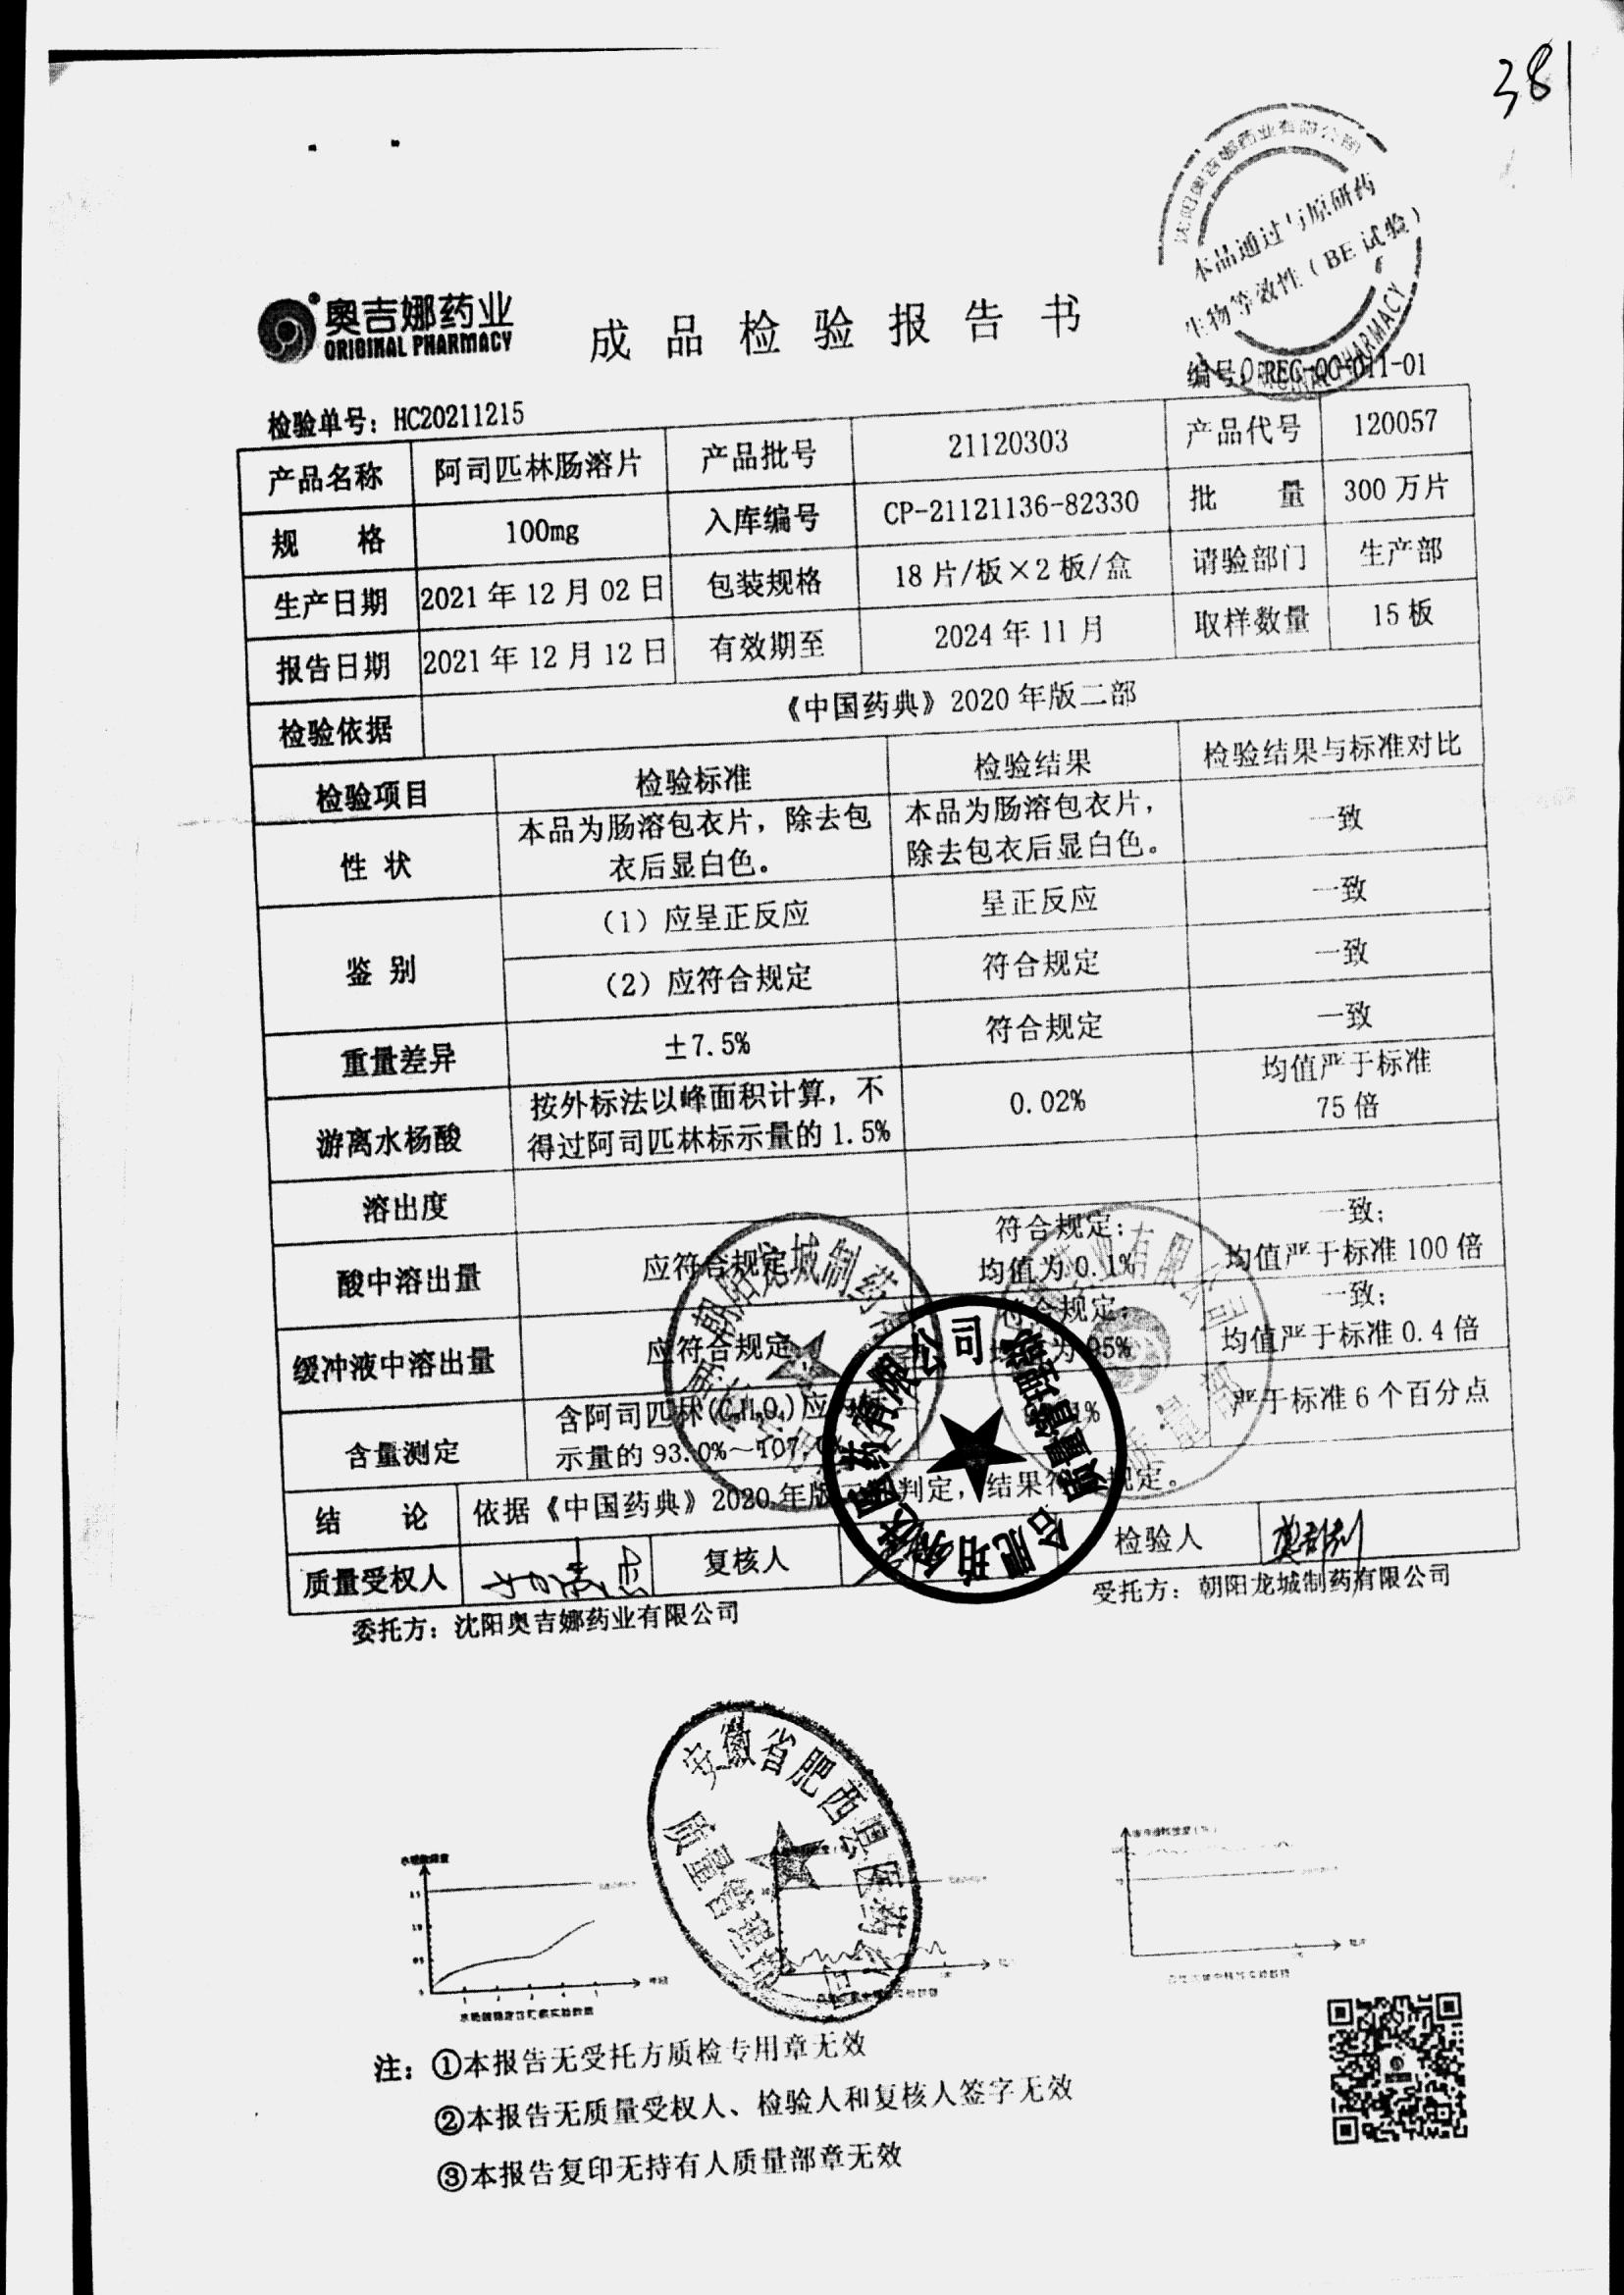 381
沈阳奥吉娜药业有限公司
本品通过与原研药
生物等效性（BE 试验）
ORIGINAL PHARMACY
奥吉娜药业
ORIGINAL PHARMACY
成品检验报告书
编号: REC-QC-011-01
检验单号: HC20211215
产品名称 阿司匹林肠溶片 产品批号 21120303 产品代号 120057
规 格 100mg 入库编号 CP-21121136-82330 批 量 300 万片
生产日期 2021 年 12 月 02 日 包装规格 18 片/板×2 板/盒 请验部门 生产部
报告日期 2021 年 12 月 12 日 有效期至 2024 年 11 月 取样数量 15 板
检验依据 《中国药典》2020 年版二部
检验项目 检验标准 检验结果 检验结果与标准对比
性 状 本品为肠溶包衣片，除去包 本品为肠溶包衣片， 一致
衣后显白色。 除去包衣后显白色。
鉴 别 （1）应呈正反应 呈正反应 一致
（2）应符合规定 符合规定 一致
重量差异 ±7.5% 符合规定 一致
游离水杨酸 按外标法以峰面积计算，不 0.02% 均值严于标准
得过阿司匹林标示量的 1.5% 75 倍
溶出度
酸中溶出量 应符合规定 符合规定; 一致;
均值为 0.1% 均值严于标准 100 倍
缓冲液中溶出量 应符合规定 符合规定; 一致;
均值严于标准 0.4 倍
含量测定 含阿司匹林(C₉H₈O₄)应 严于标准 6 个百分点
示量的 93.0%～107
结 论 依据《中国药典》2020 年版 判定，结果符 规定。
质量受权人 复核人 检验人
委托方: 沈阳奥吉娜药业有限公司 受托方: 朝阳龙城制药有限公司
朝阳龙城制药有
有限公司
安徽省肥西县医药公司
质量管理
注: ①本报告无受托方质检专用章无效
②本报告无质量受权人、检验人和复核人签字无效
③本报告复印无持有人质量部章无效